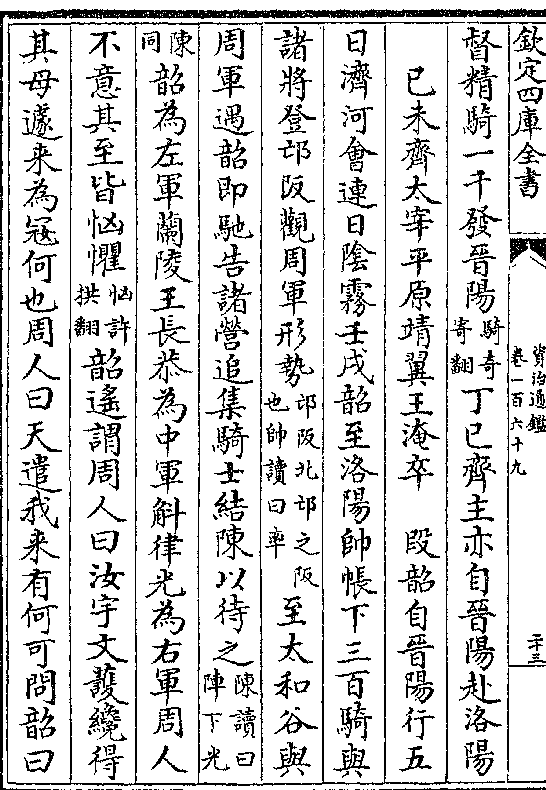 欽定四庫全書
資治通鑑
卷一百六十九
二十三
督精騎一千發晉陽騎奇寄翻丁巳齊主亦自晉陽赴洛陽
己未齊太宰平原靖翼王淹卒 段韶自晉陽行五
日濟河會連日陰霧壬戌韶至洛陽帥帳下三百騎與
諸將登邙阪觀周軍形勢邙阪北邙之阪也帥讀曰率至太和谷與
周軍遇韶即馳告諸營追集騎士結陳以待之陳讀曰陣下光
陳同韶為左軍蘭陵王長恭為中軍斛律光為右軍周人
不意其至皆恟懼恟許拱翻韶遙謂周人曰汝宇文護纔得
其母遽来為寇何也周人曰天遣我来有何可問韶曰